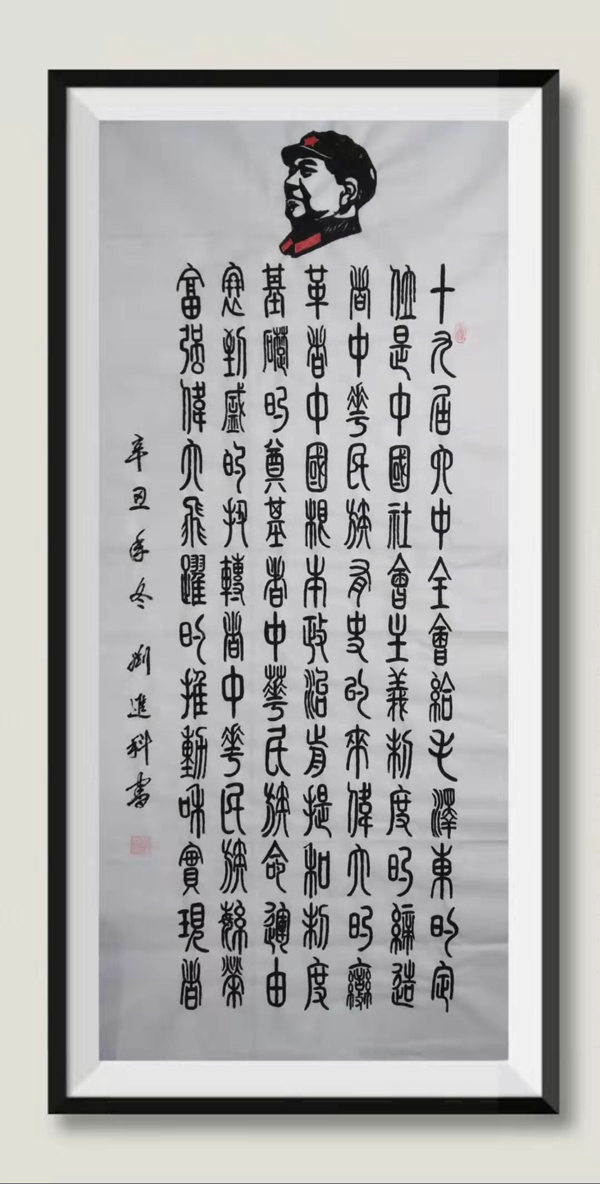 十九届六中全會給毛澤東的定
位是中國社會主義制度的締造
者中華民族有史以來偉大的變
革者中國根本政治前提和制度
基礎的奠基者中華民族命運由
衰到盛的扭轉者中華民族繁榮
富强偉大飛躍的推動和實現者
辛丑年冬 劉進科書